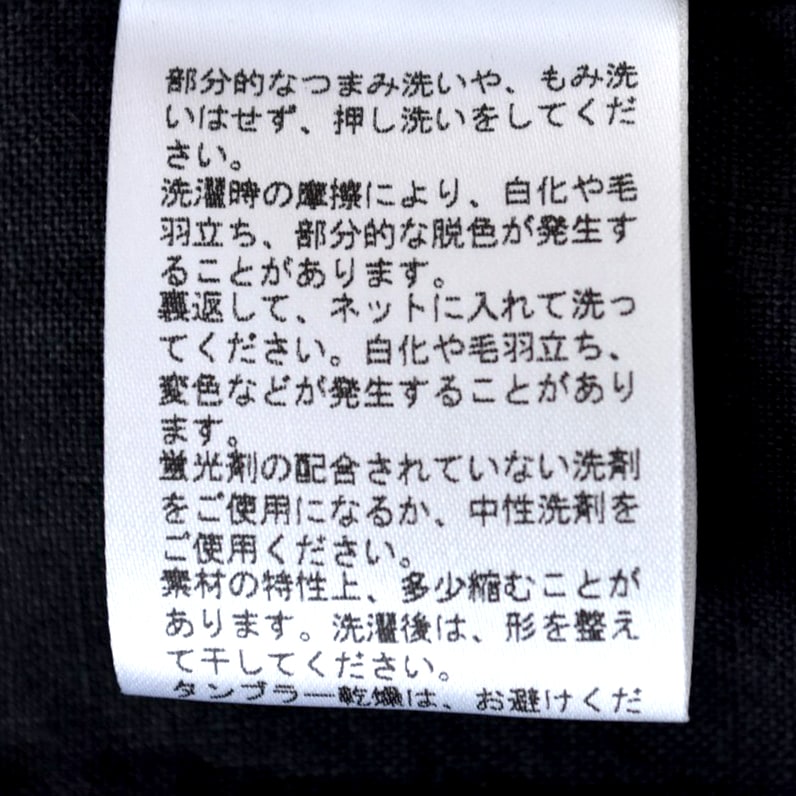 部分的なつまみ洗いや、もみ洗
いはせず、押し洗いをしてくだ
さい。
洗濯時の摩擦により、白化や毛
羽立ち、部分的な脱色が発生す
ることがあります。
裏返して、ネットに入れて洗っ
てください。白化や毛羽立ち、
変色などが発生することがあり
ます。
蛍光剤の配合されていない洗剤
をご使用になるか、中性洗剤を
ご使用ください。
素材の特性上、多少縮むことが
あります。洗濯後は、形を整え
て干してください。
タンブラー乾燥は、お避けくだ